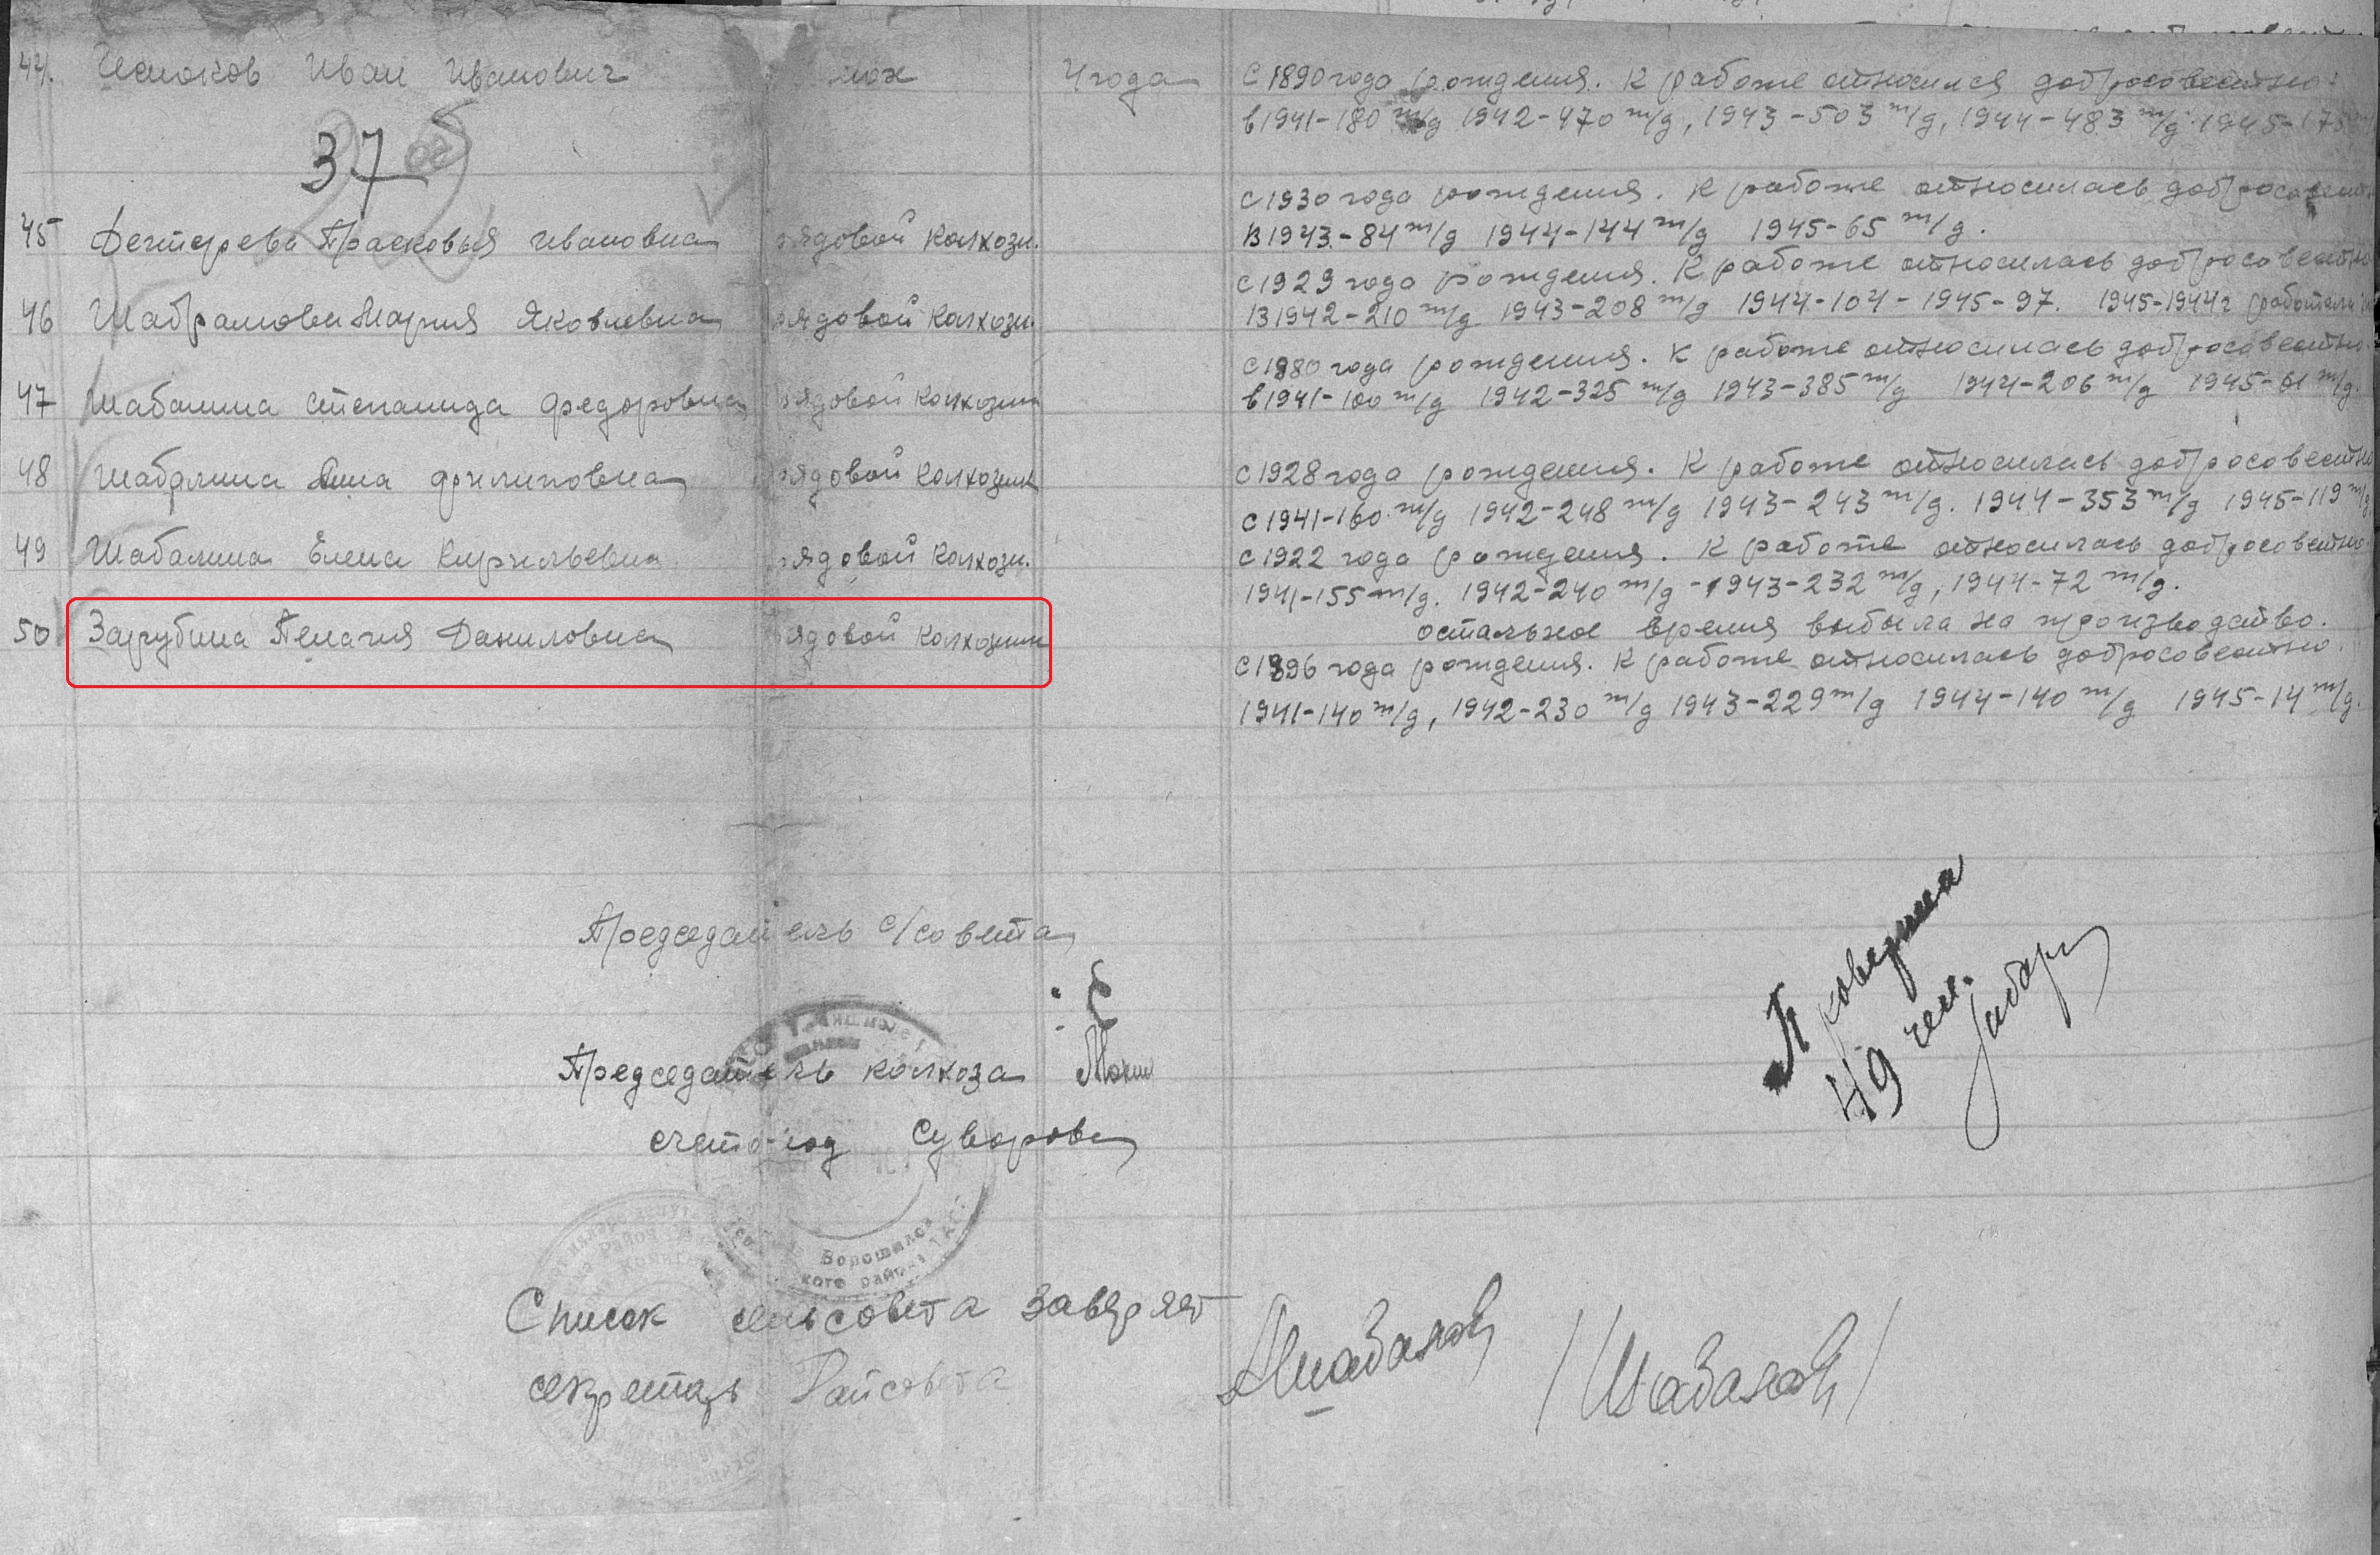 44. Иван Иванович 4 года С 1890 года рождения. К работе относился добросовестно.
в 1941-180 т/д 1942-470 т/д, 1943-503 т/д, 1944-483 т/д. 1945-175
37 об
с 1930 года рождения. К работе относилась добросовестн
45 Дегтерева Прасковья Ивановна рядовой колхозн. В 1943-84 т/д 1944-144 т/д 1945-65 т/д.
с 1929 года рождения. К работе относилась добросовестно
46 Шабрамова Мария Яковлевна рядовой колхозн. В 1942-210 т/д 1943-208 т/д 1944-104-1945-97. 1945-1944г работала
с 1880 года рождения. К работе относилась добросовестно.
47 Шабалина Степанида Федоровна рядовой колхозник в 1941-100 т/д 1942-325 т/д 1943-385 т/д 1944-206 т/д 1945-61 т/д.
48 Шабалина Анна Филиповна рядовой колхозник с 1928 года рождения. К работе относилась добросовестно
с 1941-160 т/д 1942-248 т/д 1943-243 т/д. 1944-353 т/д 1945-119 т/д
49 Шабалина Елена Кирильевна рядовой колхозн. с 1922 года рождения. К работе относилась добросовестно.
1941-155 т/д. 1942-240 т/д-1943-232 т/д, 1944-72 т/д.
остальное время выбыла на производство.
50 Зарубина Пелагия Даниловна рядовой колхозник с 1896 года рождения. К работе относилась добросовестно.
1941-140 т/д, 1942-230 т/д 1943-229 т/д 1944-140 т/д 1945-14 т/д.
Председатель с/совета
Председатель колхоза
счетовод Суворова
49 чел.
Ворошилов
кого района
Список сельсовета заверяет
секретарь Райсовета Шабалов /Шабалов/